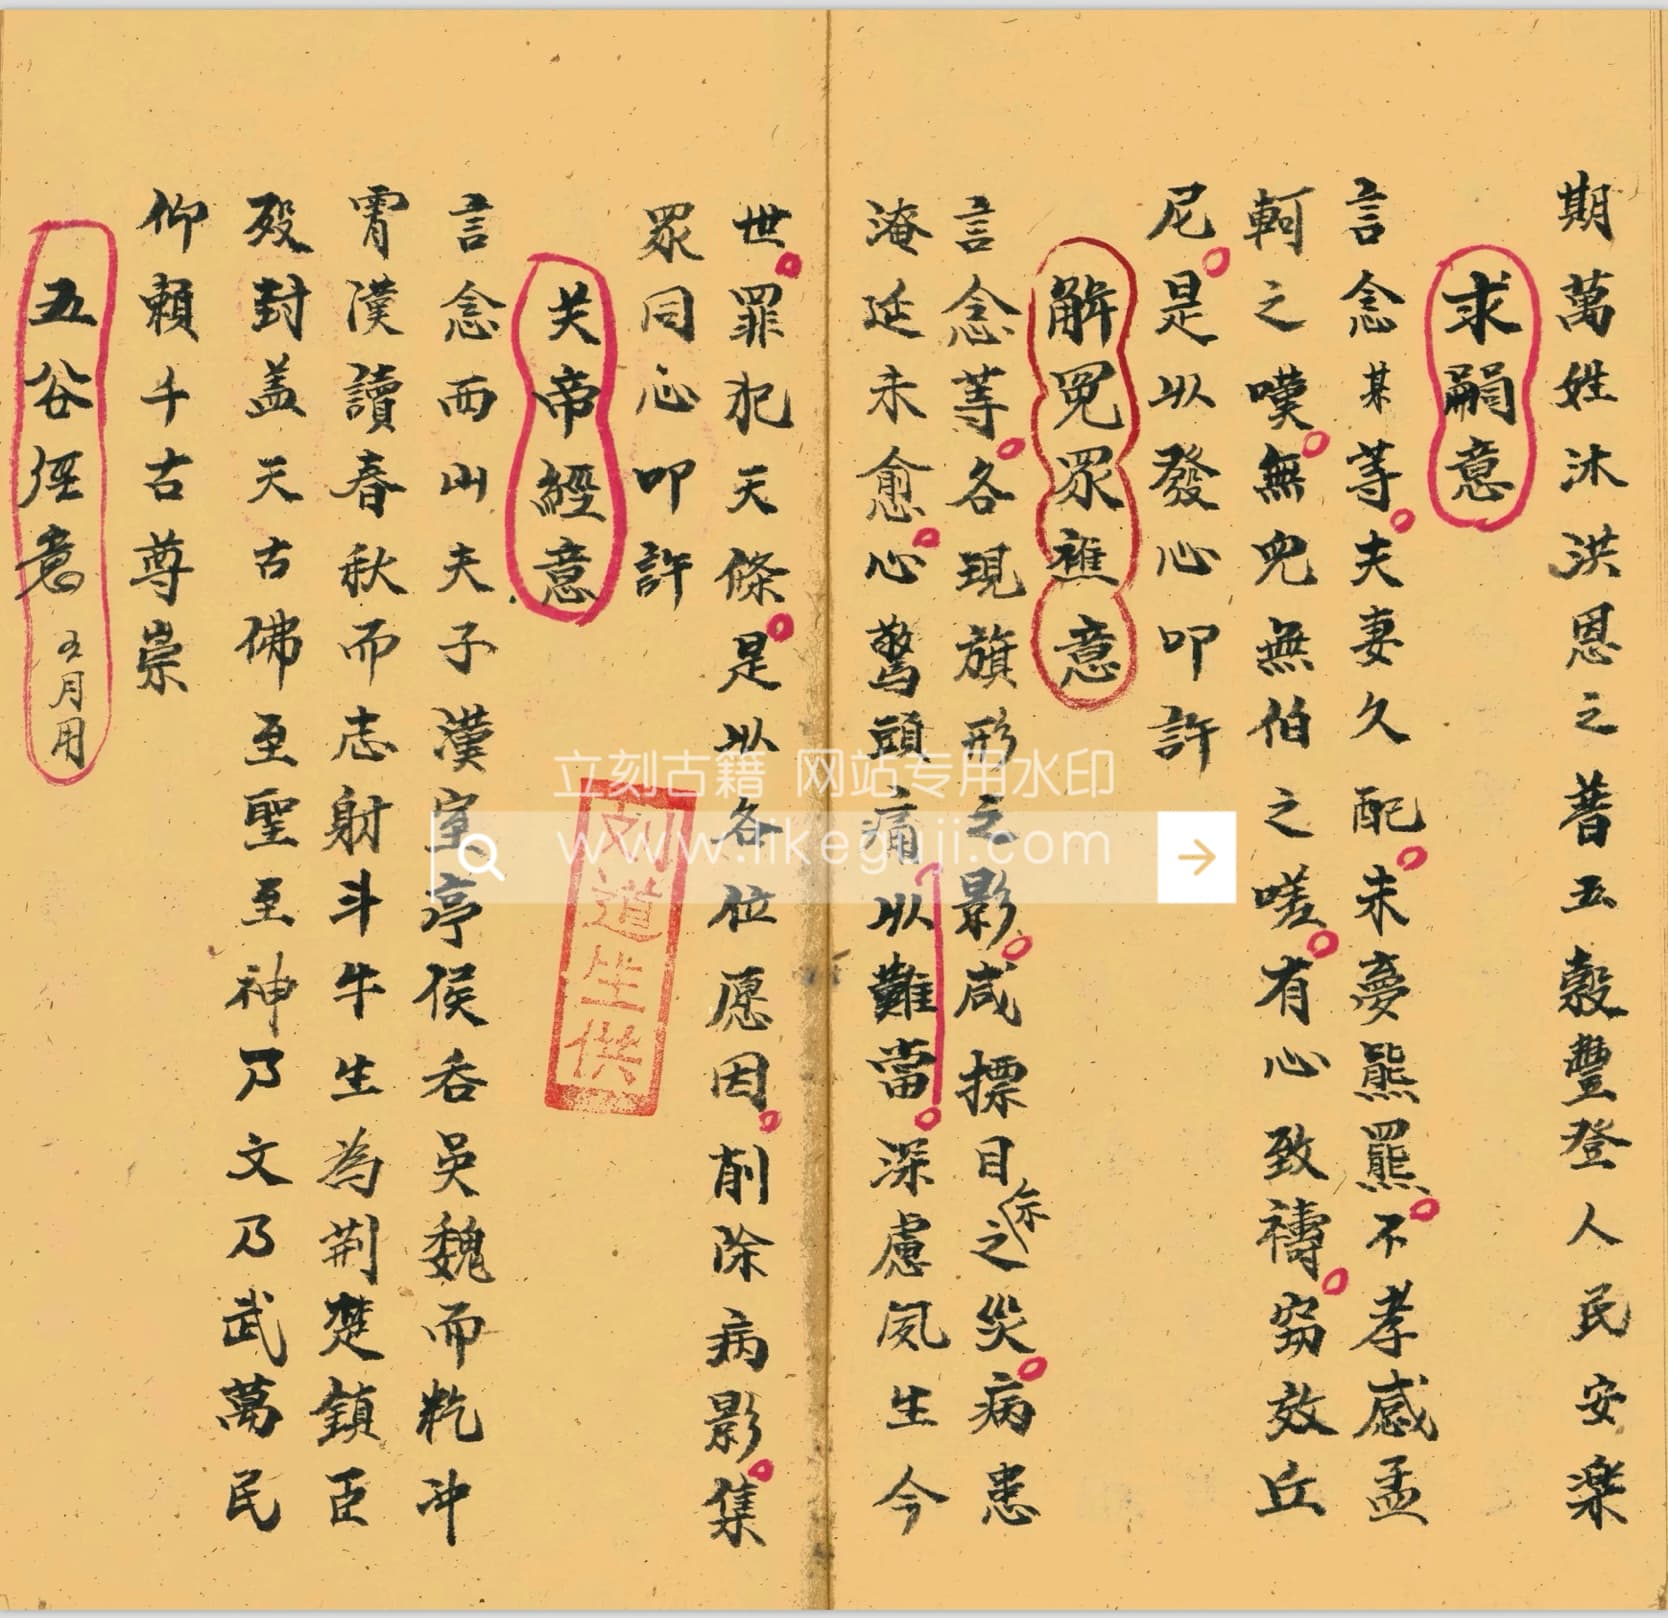 期萬姓沐洪恩之普五穀豐登人民安樂
求嗣意
言念某等夫妻久配未夢熊羆不孝感孟
軻之嘆無兒無伯之嗟有心致禱窃效丘
尼是以發心叩許
解冤眾醮意
言念等各現旗形之影咸摽目之災病患
示
淹延未愈心驚頭痛以難當深慮夙生今
世罪犯天條是以各位愿因削除病影集
眾同心叩許
关帝經意
言念西山夫子漢室亭侯吞吳魏而矻冲
霄漢讀春秋而志射斗牛生為荆楚鎮臣
殁封盖天古佛至聖至神乃文乃武萬民
仰賴千古尊崇
五谷径意 五月用
刘道生供
立刻古籍 网站专用水印
www.likeguji.com